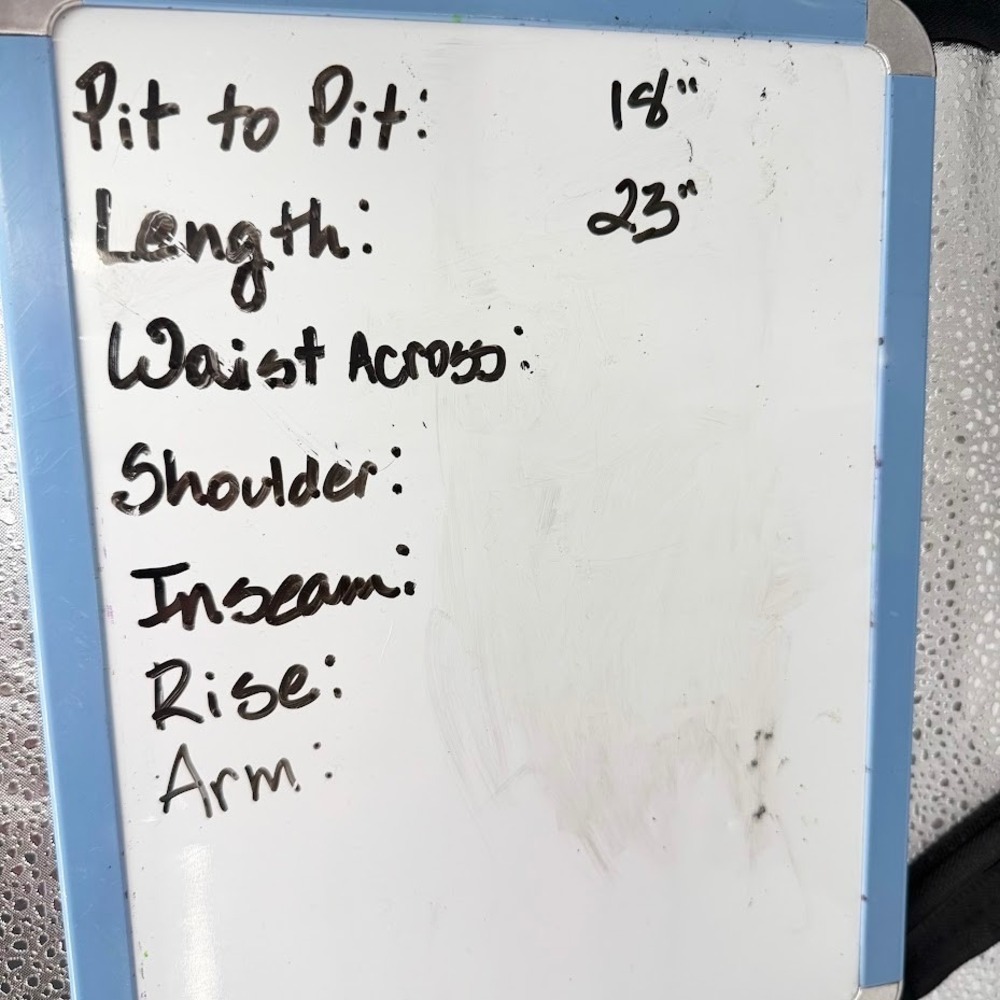 Pit to Pit: 18"
Length: 23"
Waist Across:
Shoulder:
Inseam:
Rise:
Arm: